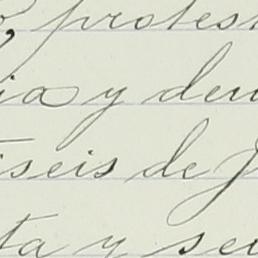 protest
ia y den
iseis de J
ta y se